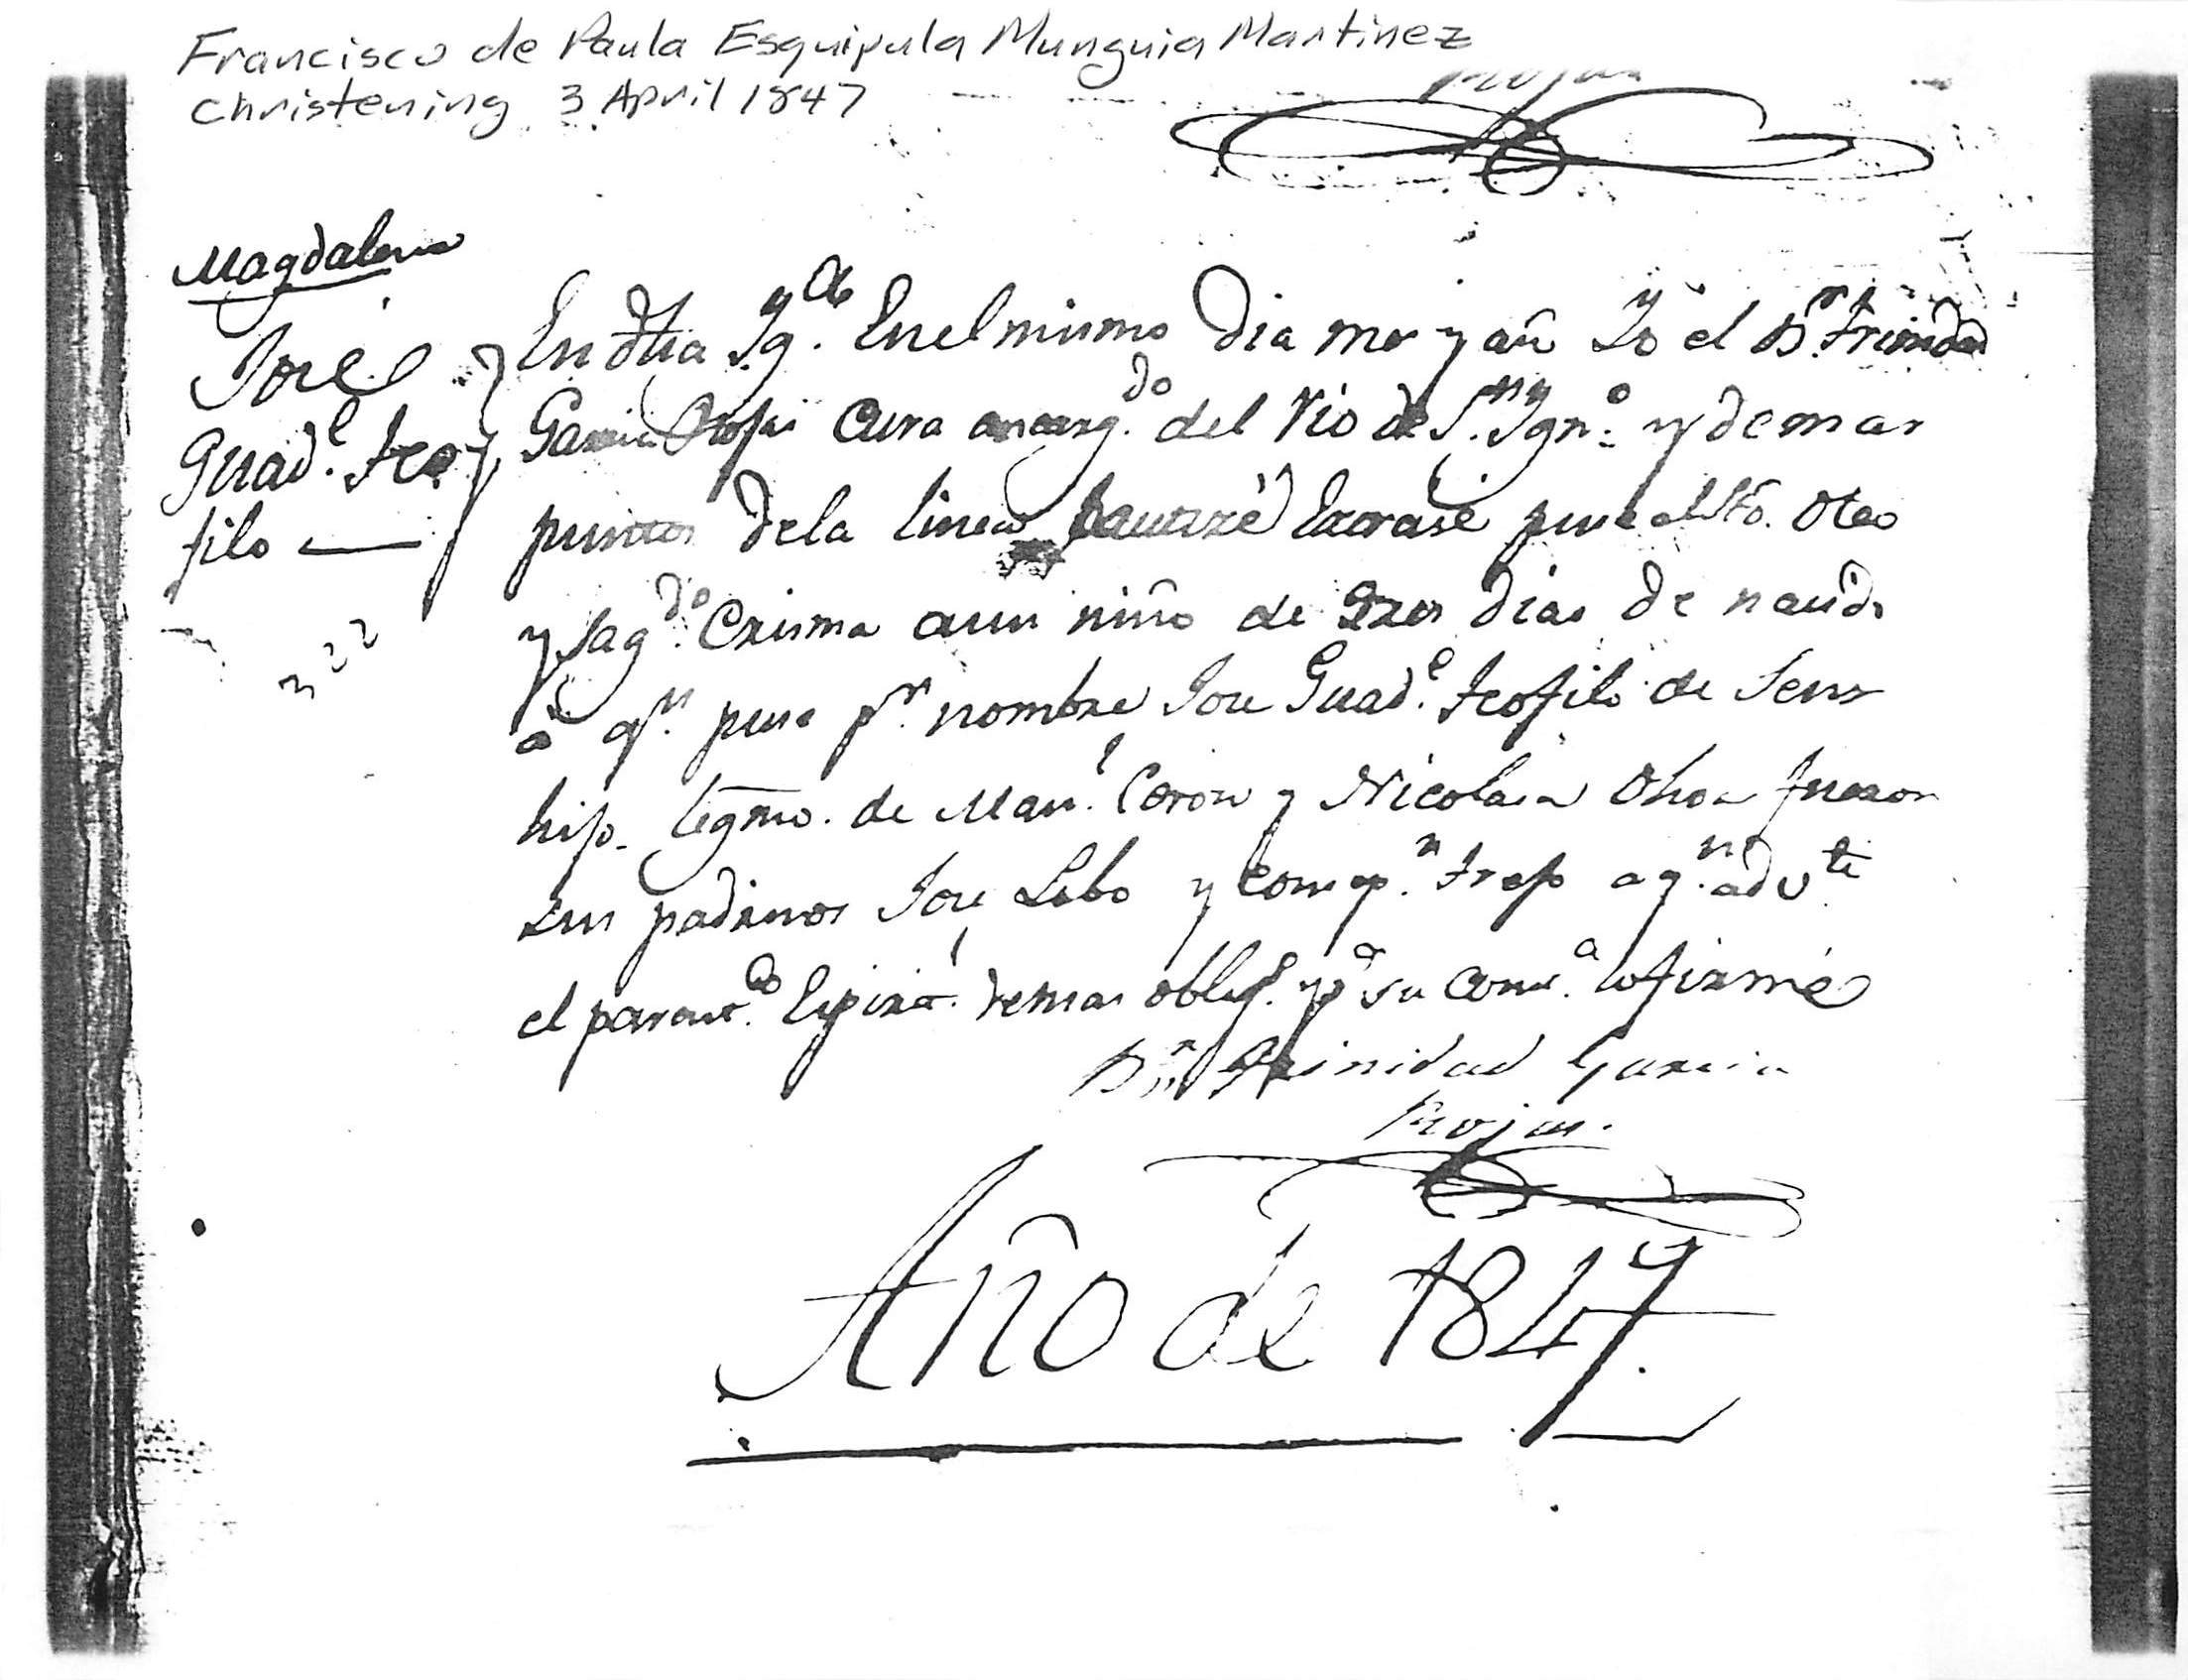 Francisco de Paula Esquipula Munguia Martinez
Christening 3 April 1847
Rojas
Magdalena
José
Guad.e Teo
filo —
322
En dha Yg.a En el mismo Dia mes y añ Yo el B.r Trinidad
Garcia Rojas Cura encarg.do del Rio de S.n Ygn.o y demas
puntos dela linea bautizé puse el Sto. Oleo
y Sag.do Crisma aun niño de dias de nacido
a q.n puse p.r nombre Jose Guad.e Teofilo de
hijo legmo. de Man.l y Nicolasa Ochoa fueron
sus padrinos Jose Lobo y a q.nes adv.te
el parent.co Espirál. demas oblig.s y p.a su const.a lo firmé
B.r Trinidad Garcia
Rojas.
Año de 1847.